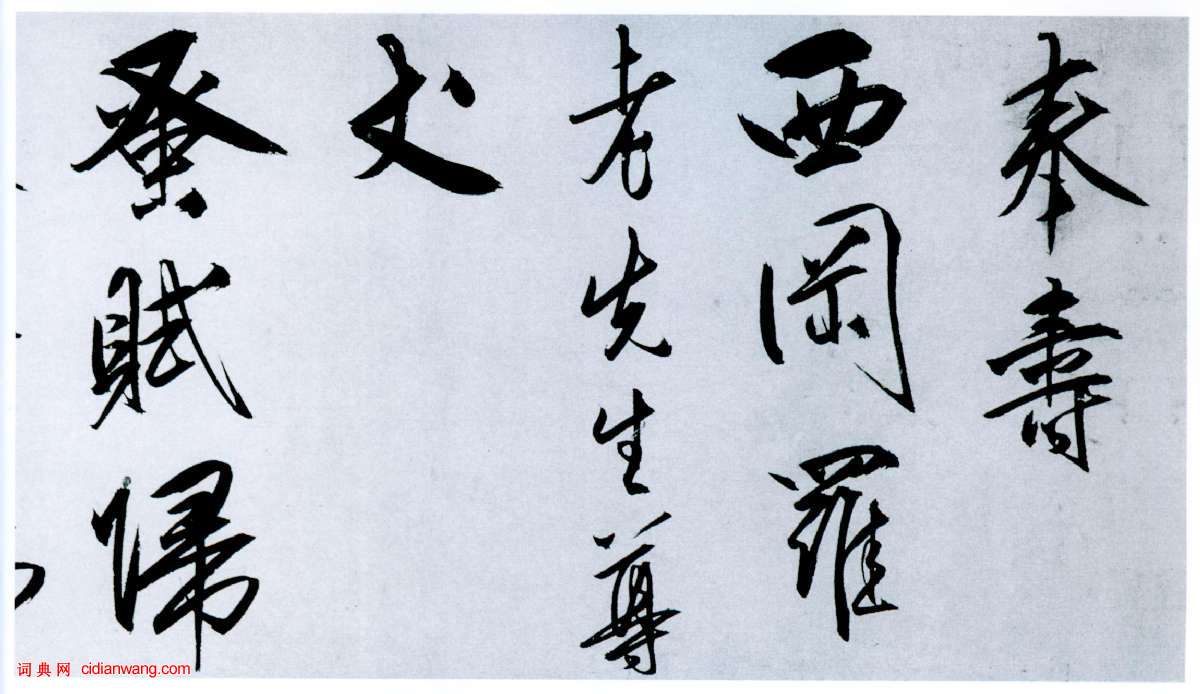 奉壽
西岡羅
老先生尊
丈
蚤賦歸
词典网 cidianwang.com